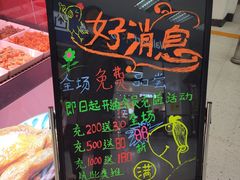 好消息
全场免费品尝
即日起开启会员充值活动
充200送30
充500送80
充1000送180
全场
满